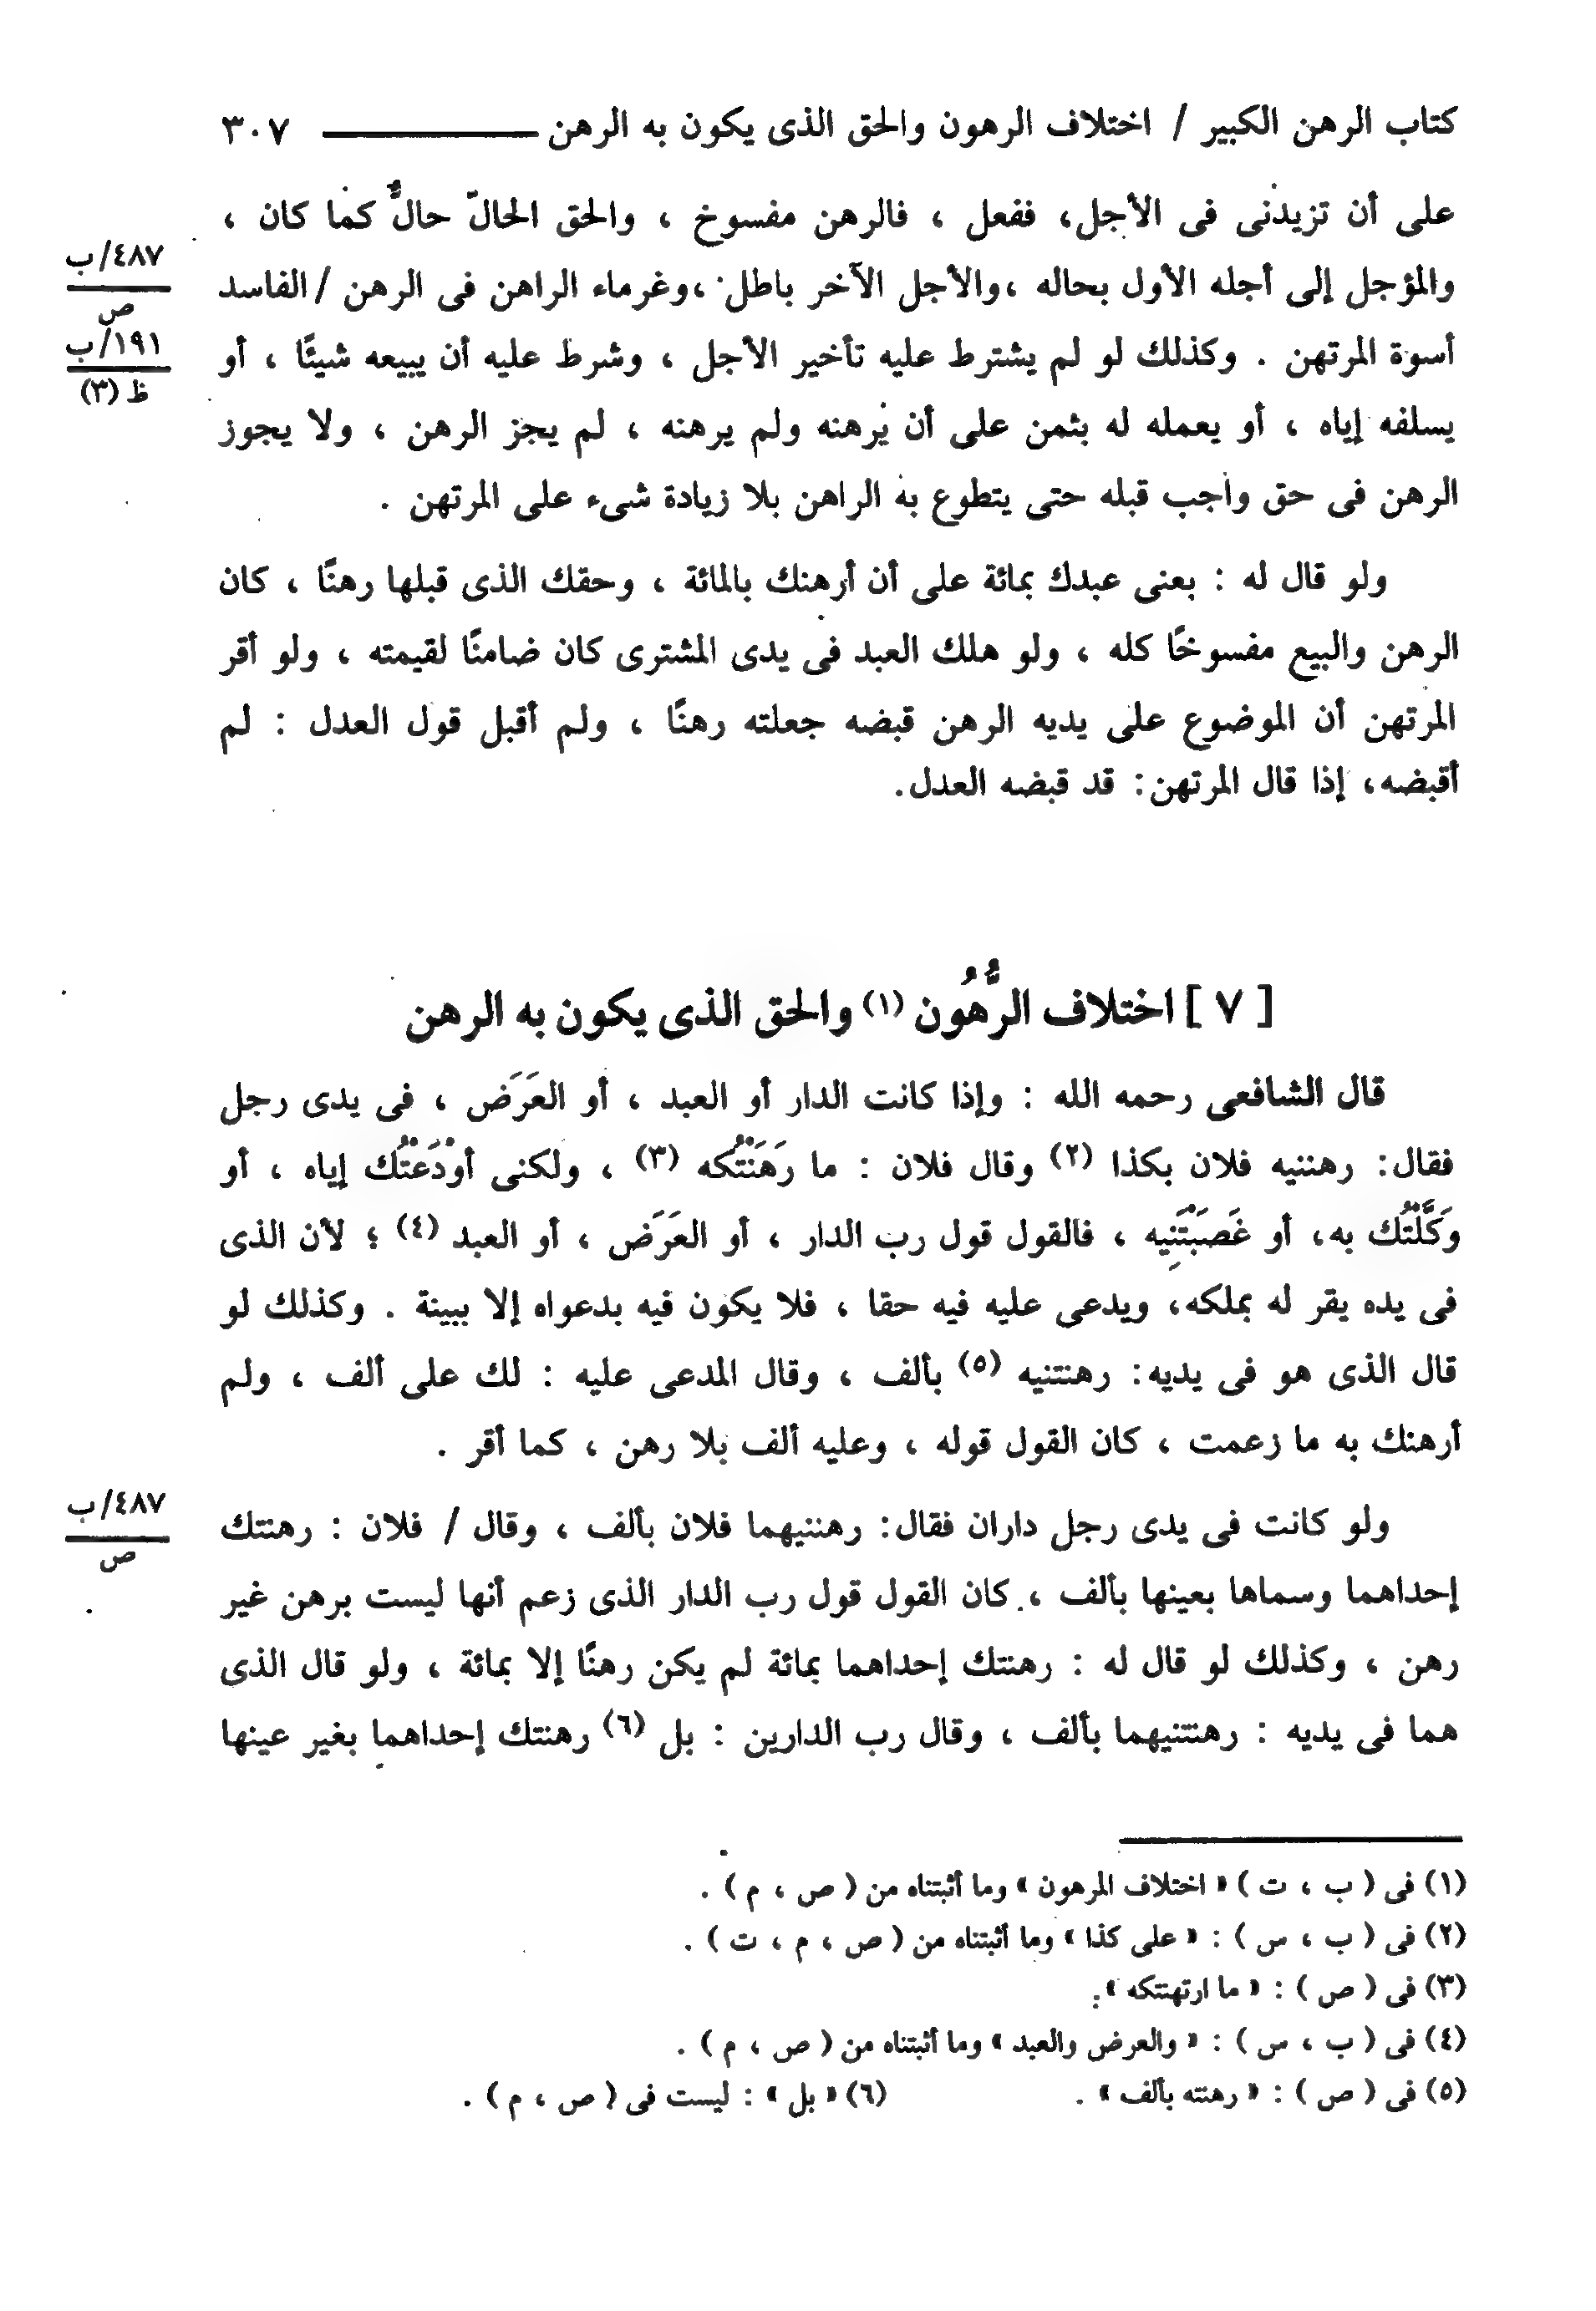 كتاب الرهن الكبير / اختلاف الرهون والحق الذى يكون به الرهن ٣٠٧
على أن تزيدنى فى الأجل، ففعل ، فالرهن مفسوخ ، والحق الحالّ حالٌّ كما كان ،
والمؤجل إلى أجله الأول بحاله ،والأجل الآخر باطل ،وغرماء الراهن فى الرهن / الفاسد
أسوة المرتهن . وكذلك لو لم يشترط عليه تأخير الأجل ، وشرط عليه أن يبيعه شيئًا ، أو
يسلفه إياه ، أو يعمله له بثمن على أن يرهنه ولم يرهنه ، لم يجز الرهن ، ولا يجوز
الرهن فى حق واجب قبله حتى يتطوع به الراهن بلا زيادة شىء على المرتهن .
٤٨٧/ب
ص
١٩١/ب
ظ (٣)
ولو قال له : بعنى عبدك بمائة على أن أرهنك بالمائة ، وحقك الذى قبلها رهنًا ، كان
الرهن والبيع مفسوخًا كله ، ولو هلك العبد فى يدى المشترى كان ضامنًا لقيمته ، ولو أقر
المرتهن أن الموضوع على يديه الرهن قبضه جعلته رهنًا ، ولم أقبل قول العدل : لم
أقبضه، إذا قال المرتهن: قد قبضه العدل.
[ ٧ ] اختلاف الرُّهُون (١) والحق الذى يكون به الرهن
قال الشافعى رحمه الله : وإذا كانت الدار أو العبد ، أو العَرَض ، فى يدى رجل
فقال: رهننيه فلان بكذا (٢) وقال فلان : ما رَهَنْتُكه (٣) ، ولكنى أوْدَعتُك إياه ، أو
وَكَّلْتُك به، أو غَصَبْتَنِيه ، فالقول قول رب الدار ، أو العَرَض ، أو العبد (٤) ؛ لأن الذى
فى يده يقر له بملكه، ويدعى عليه فيه حقا ، فلا يكون فيه بدعواه إلا ببينة . وكذلك لو
قال الذى هو فى يديه: رهنتنيه (٥) بألف ، وقال المدعى عليه : لك على ألف ، ولم
أرهنك به ما زعمت ، كان القول قوله ، وعليه ألف بلا رهن ، كما أقر .
ولو كانت فى يدى رجل داران فقال: رهننيهما فلان بألف ، وقال / فلان : رهنتك
إحداهما وسماها بعينها بألف ، كان القول قول رب الدار الذى زعم أنها ليست برهن غير
رهن ، وكذلك لو قال له : رهنتك إحداهما بمائة لم يكن رهنًا إلا بمائة ، ولو قال الذى
هما فى يديه : رهنتنيهما بألف ، وقال رب الدارين : بل (٦) رهنتك إحداهما بغير عينها
٤٨٧/ب
ص
(١) فى ( ب ، ت ) « اختلاف المرهون » وما أثبتناه من ( ص ، م ) .
(٢) فى ( ب ، س ) : « على كذا » وما أثبتناه من ( ص ، م ، ت ) .
(٣) فى ( ص ) : « ما ارتهنتكه » .
(٤) فى ( ب ، س ) : « والعرض والعبد » وما أثبتناه من ( ص ، م ) .
(٥) فى ( ص ) : « رهنته بألف » . (٦) « بل » : ليست فى ( ص ، م ) .